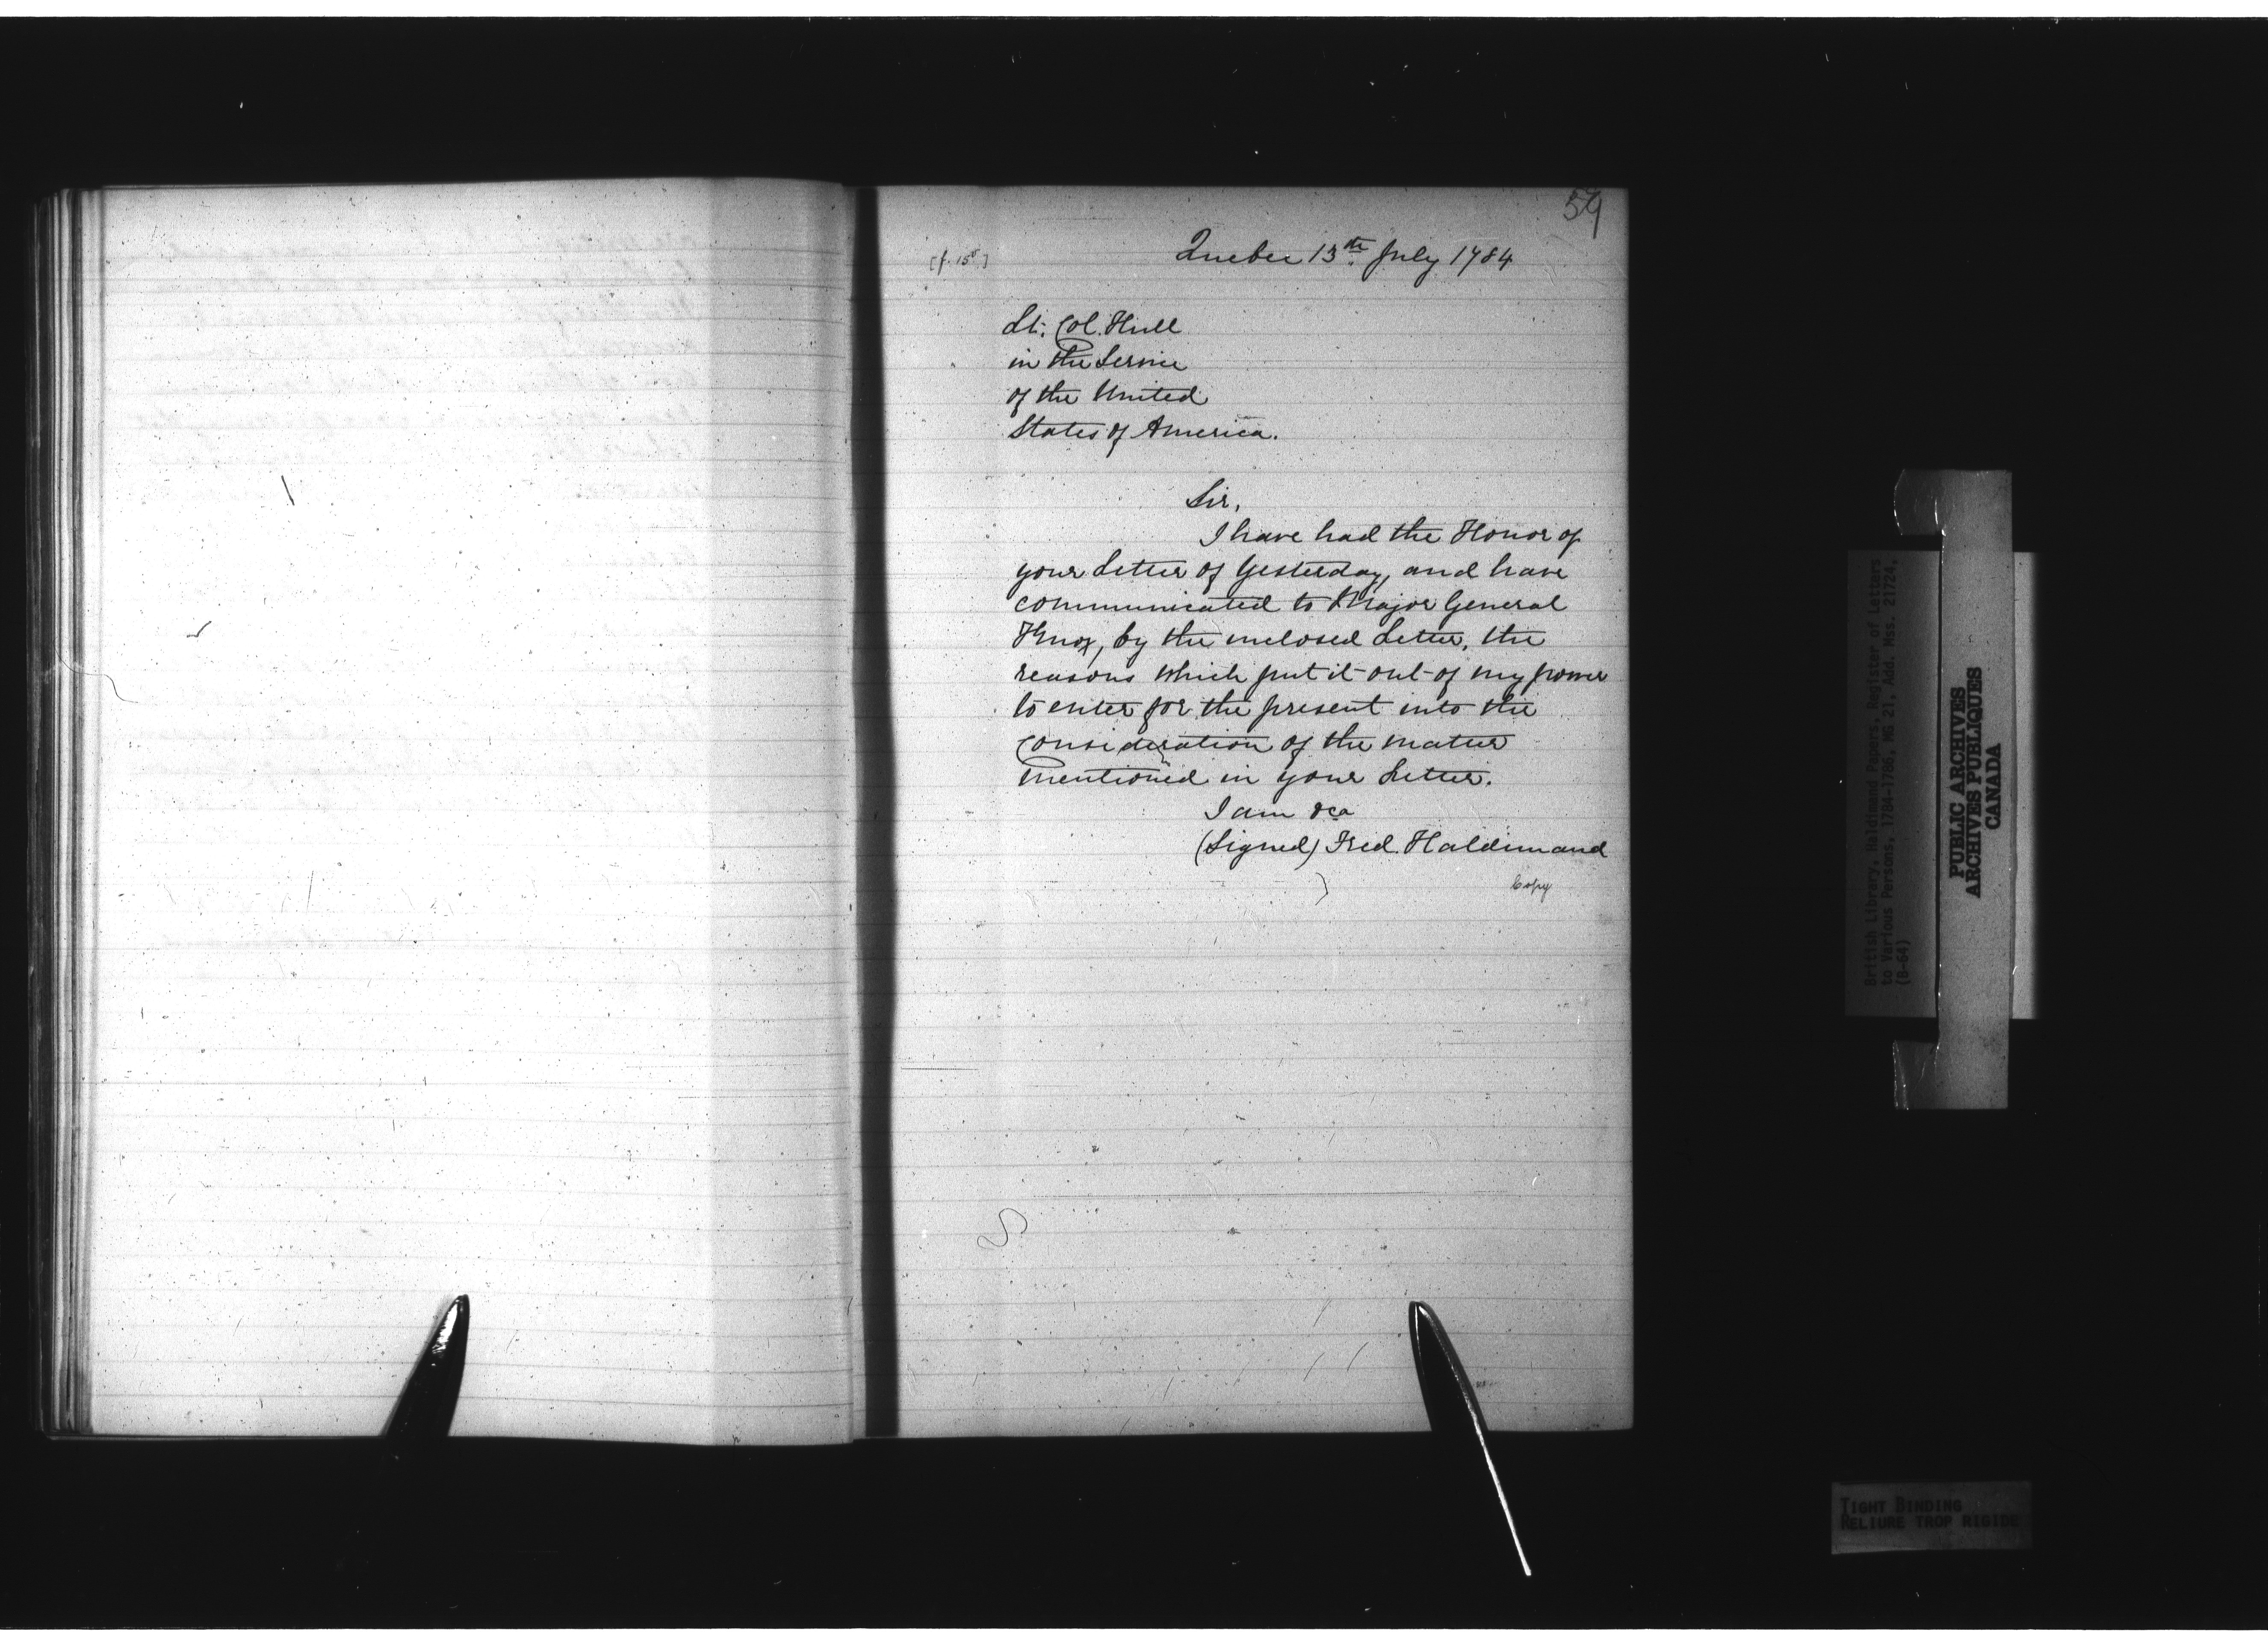 59
[f. 15]
Quebec 13th July 1784
Lt. Col. Hull
in the Service
of the United
States of America.
Sir,
I have had the Honor of
your Letter of Yesterday, and have
communicated to Major General
Knox, by the inclosed Letter, the
reasons which put it out of my power
to enter for the present into the
Consideration of the matter
mentioned in your Letter.
I am &ca
(Signed) Fred. Haldimand
Copy
British Library, Haldimand Papers, Register of Letters
to Various Persons, 1784-1786, MG 21, Add. Mss. 21724,
(B-64)
PUBLIC ARCHIVES
ARCHIVES PUBLIQUES
CANADA
TIGHT BINDING
RELIURE TROP RIGIDE